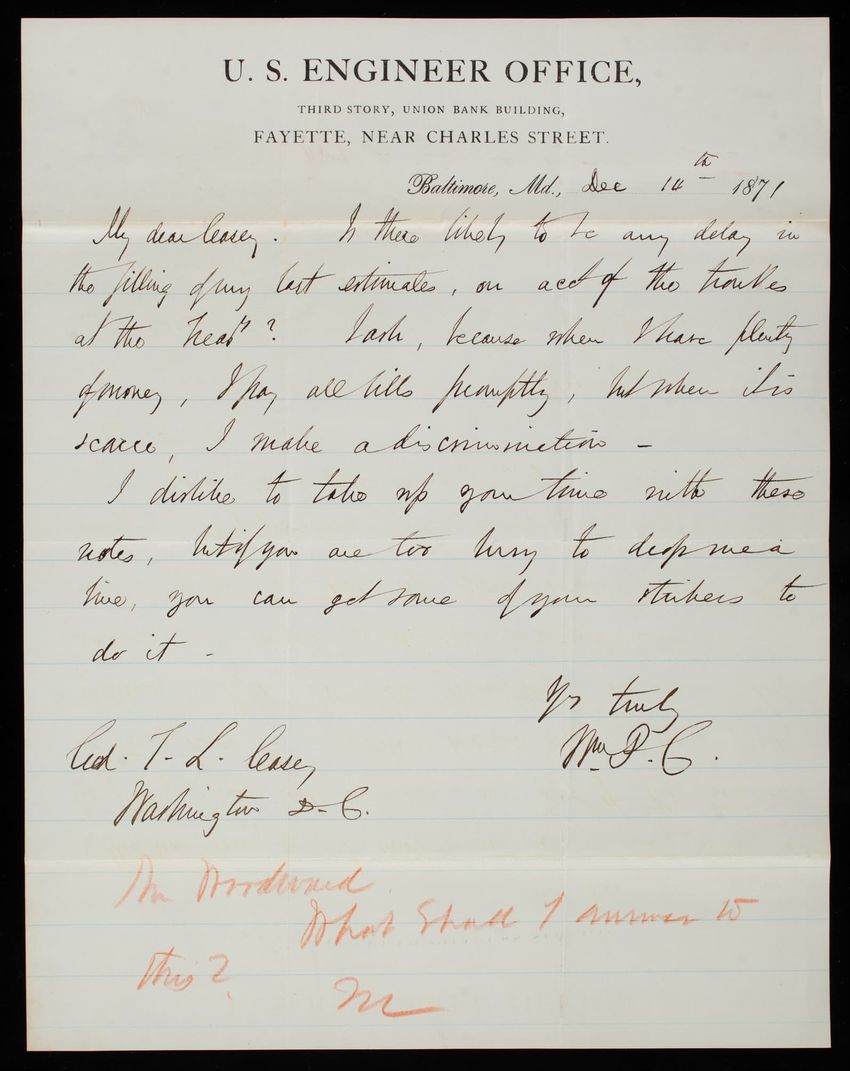 U. S. ENGINEER OFFICE,
THIRD STORY, UNION BANK BUILDING,
FAYETTE, NEAR CHARLES STREET.
Baltimore, Md., Dec 14th 1871
My dear Casey. Is there likely to be any delay in
the filling of my last estimates, on acct of the troubles
at the "head"? I ask, because when I have plenty
of money, I pay all bills promptly, but when it is
scarce, I make a discrimination -
I dislike to take up your time with these
notes, but if you are too busy to drop me a
line, you can get some of your strikers to
do it -
Yr truly
Wm. P. C.
Col. T. L. Casey
Washington D. C.
Mr Woodward
What Shall I answer to
this?